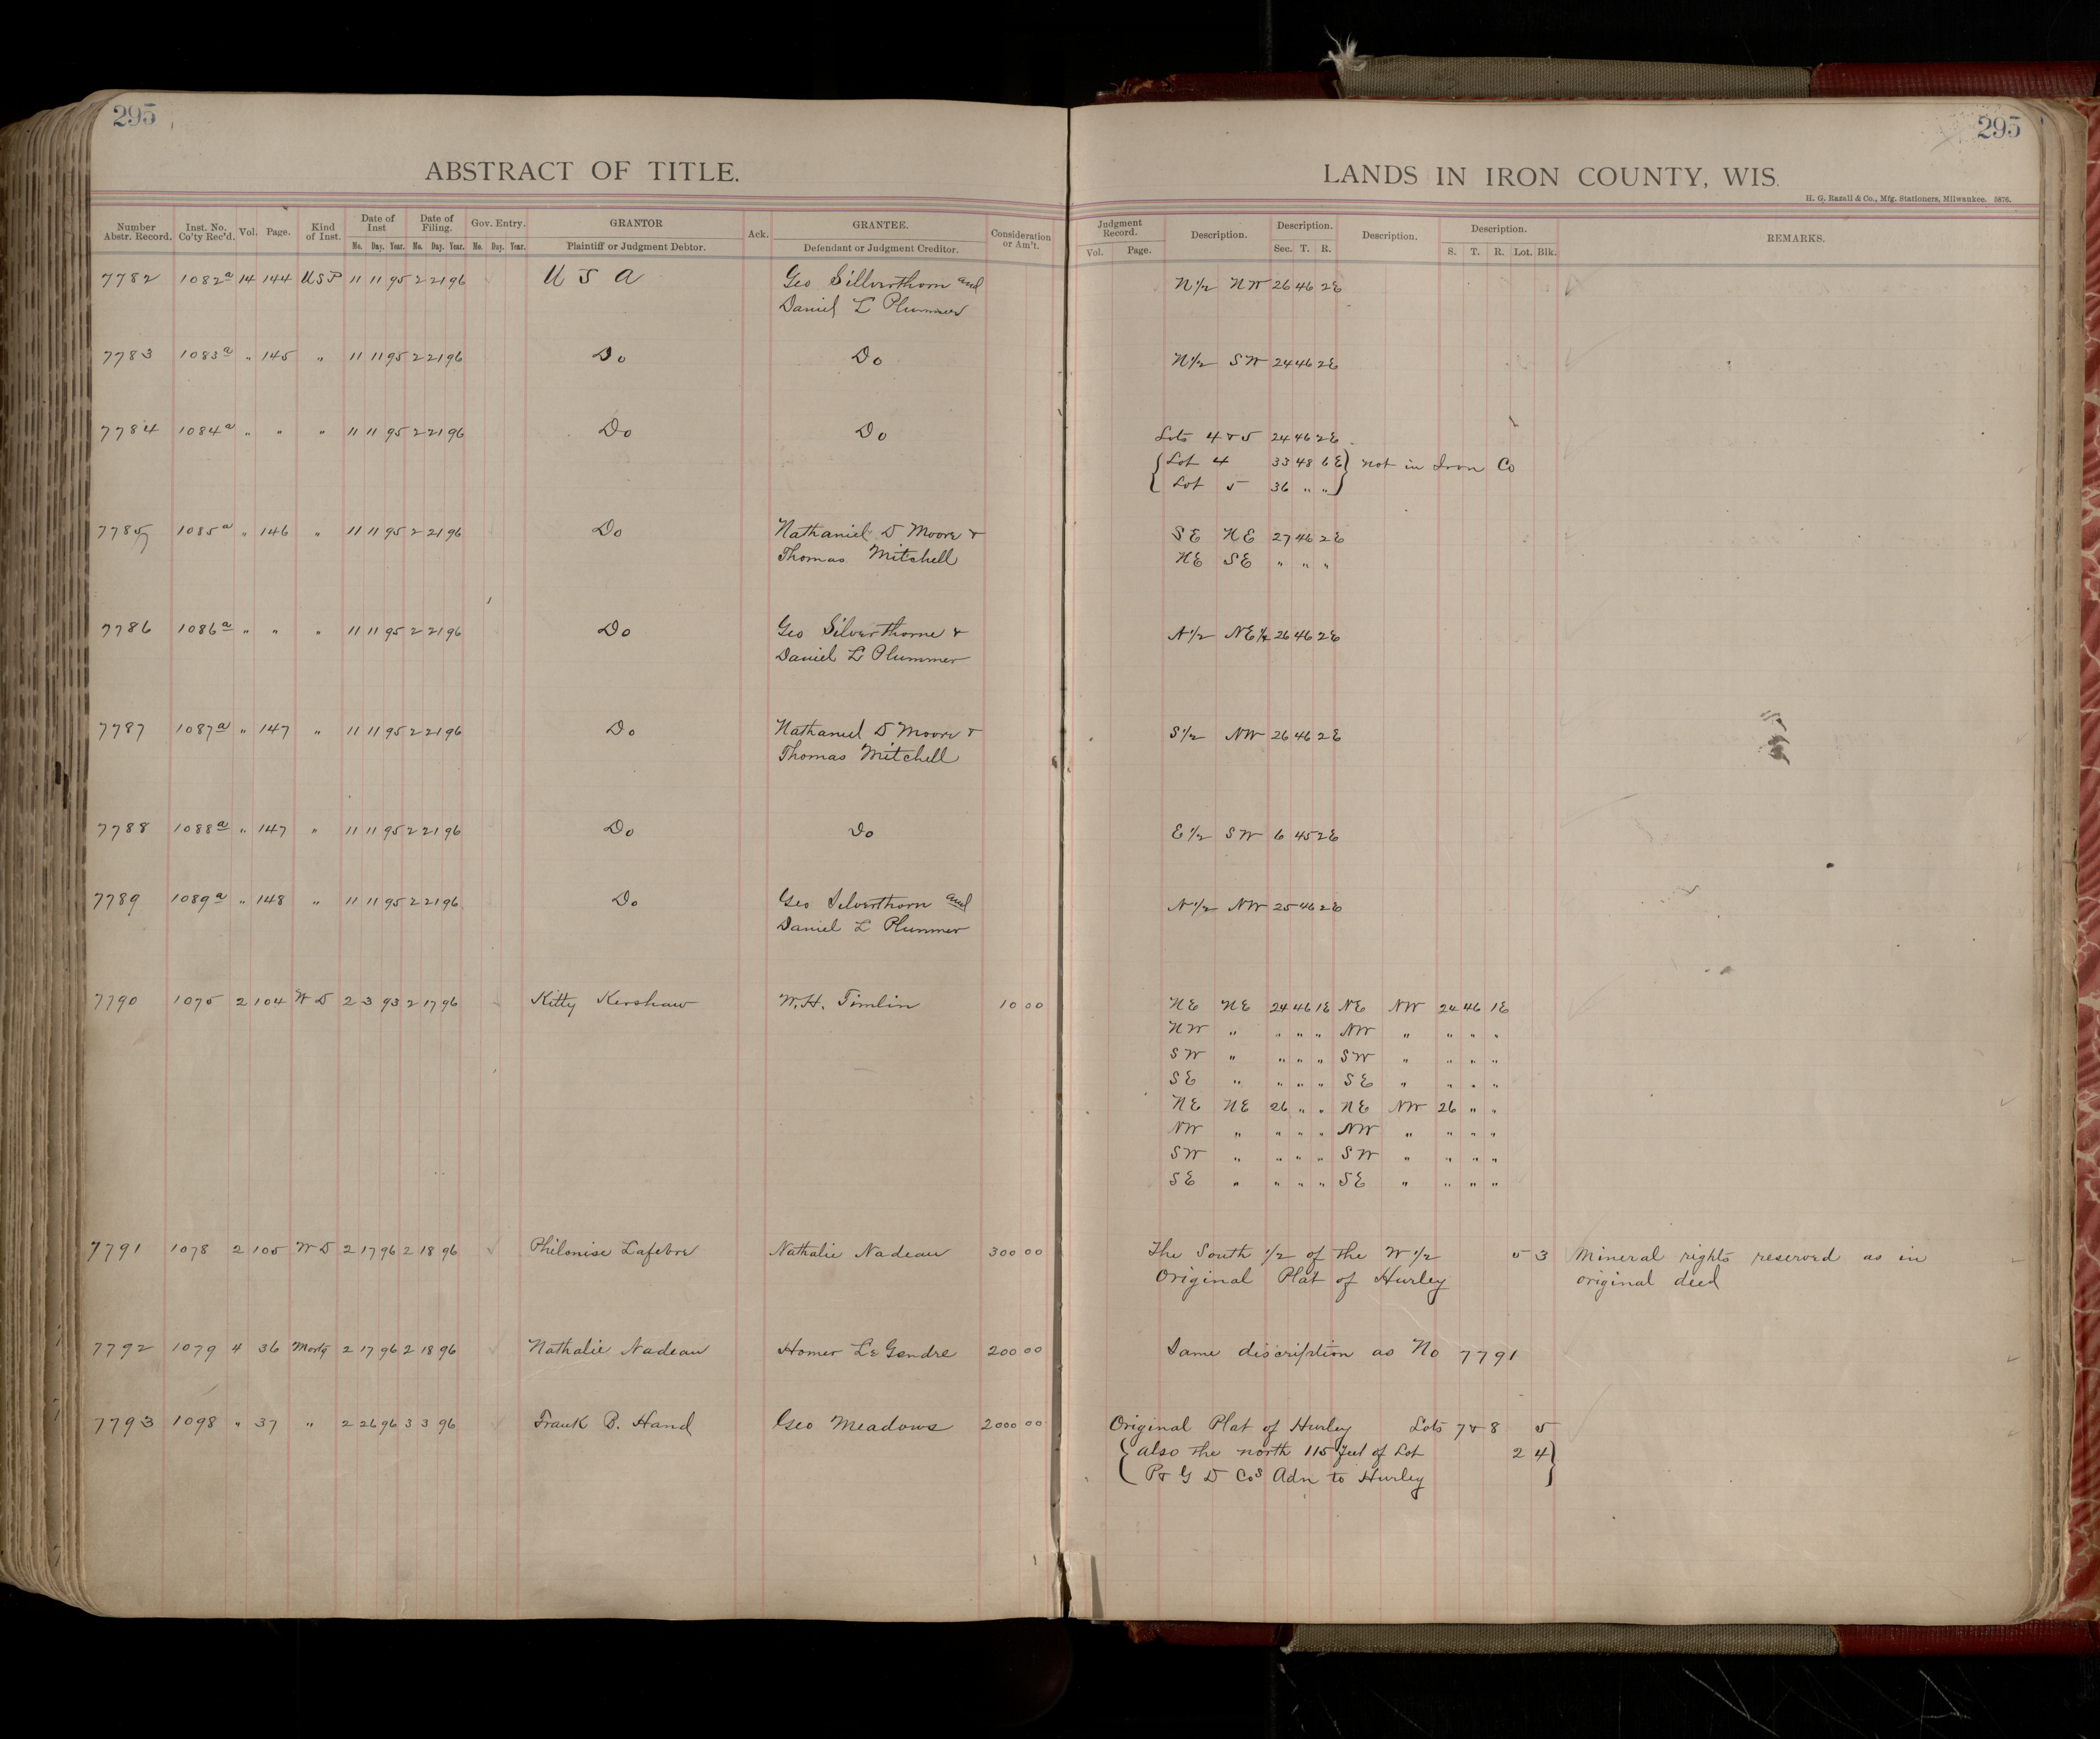 295
295
ABSTRACT OF TITLE.
LANDS IN IRON COUNTY, WIS.
H. G. Razall & Co., Mfg. Stationers, Milwaukee. 5876.
Number Abstr. Record. Inst. No. Co'ty Rec'd. Vol. Page. Kind of Inst. Date of Inst Mo. Day. Year. Date of Filing. Mo. Day. Year. Gov. Entry. Mo. Day. Year. GRANTOR Plaintiff or Judgment Debtor. Ack. GRANTEE. Defendant or Judgment Creditor. Consideration or Am't. Judgment Record. Vol. Page. Description. Description. Sec. T. R. Description. Description. S. T. R. Lot. Blk. REMARKS.
7782 1082a 14 144 USP 11 11 95 2 21 96 U S A Geo Sillverthorn and N 1/2 NW 26 46 2E
Daniel L Plummer
7783 1083a " 145 " 11 11 95 2 21 96 Do Do N 1/2 SW 24 46 2E
7784 1084a " " " 11 11 95 2 21 96 Do Do Lots 4 & 5 24 46 2E
Lot 4 33 48 6E } not in Iron Co
Lot 5 36 " "
7785 1085a " 146 " 11 11 95 2 21 96 Do Nathaniel D Moore & SE NE 27 46 2E
Thomas Mitchell NE SE " " "
7786 1086a " " " 11 11 95 2 21 96 Do Geo Silverthorne & N 1/2 NE 1/4 26 46 2E
Daniel L Plummer
7787 1087a " 147 " 11 11 95 2 21 96 Do Nathaniel D Moore & S 1/2 NW 26 46 2E
Thomas Mitchell
7788 1088a " 147 " 11 11 95 2 21 96 Do Do E 1/2 SW 6 45 2E
7789 1089a " 148 " 11 11 95 2 21 96 Do Geo Silverthorn and N 1/2 NW 25 46 2E
Daniel L Plummer
7790 1075 2 104 W D 2 3 93 2 17 96 Kitty Kershaw W.H. Timlin 10 00 NE NE 24 46 1E NE NW 24 46 1E
NW " " " " NW " " " "
SW " " " " SW " " " "
SE " " " " SE " " " "
NE NE 26 " " NE NW 26 " "
NW " " " " NW " " " "
SW " " " " SW " " " "
SE " " " " SE " " " "
7791 1078 2 105 W D 2 17 96 2 18 96 Philonise Lafebre Nathalie Nadeau 300 00 The South 1/2 of the W 1/2 5 3 Mineral rights reserved as in
Original Plat of Hurley original deed
7792 1079 4 36 Mortg 2 17 96 2 18 96 Nathalie Nadeau Homer LeGendre 200 00 Same discription as No 7791
7793 1098 " 37 " 2 26 96 3 3 96 Frank B. Hand Geo Meadows 2000 00 Original Plat of Hurley Lots 7 & 8 5
{ also the north 115 feet of Lot 2 4 }
P & G D Cos Adn to Hurley